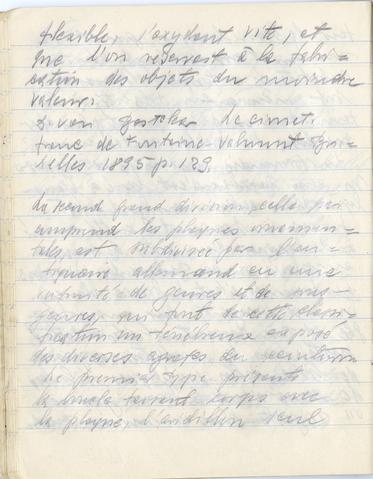 flexible, s'oxydant vite, et
que l'on réservait à la fabri=
cation des objets du moindre
valeur.
Le cimeti.
franc de Fontaine-Valmont Bru=
xelles 1895 p. 129.
La second grand division, celle qui
comprend des plaques ornemen=
tales, est subdivisée par l'an=
tiquaire allemand en une
infinité de genres et de sous=
genres, qui font de cette classi=
fication un ténébreux exposé
des diverses agrafes du ceinturon
Le premier type présente
la boucle faisant corps avec
la plaque, l'ardillon seul